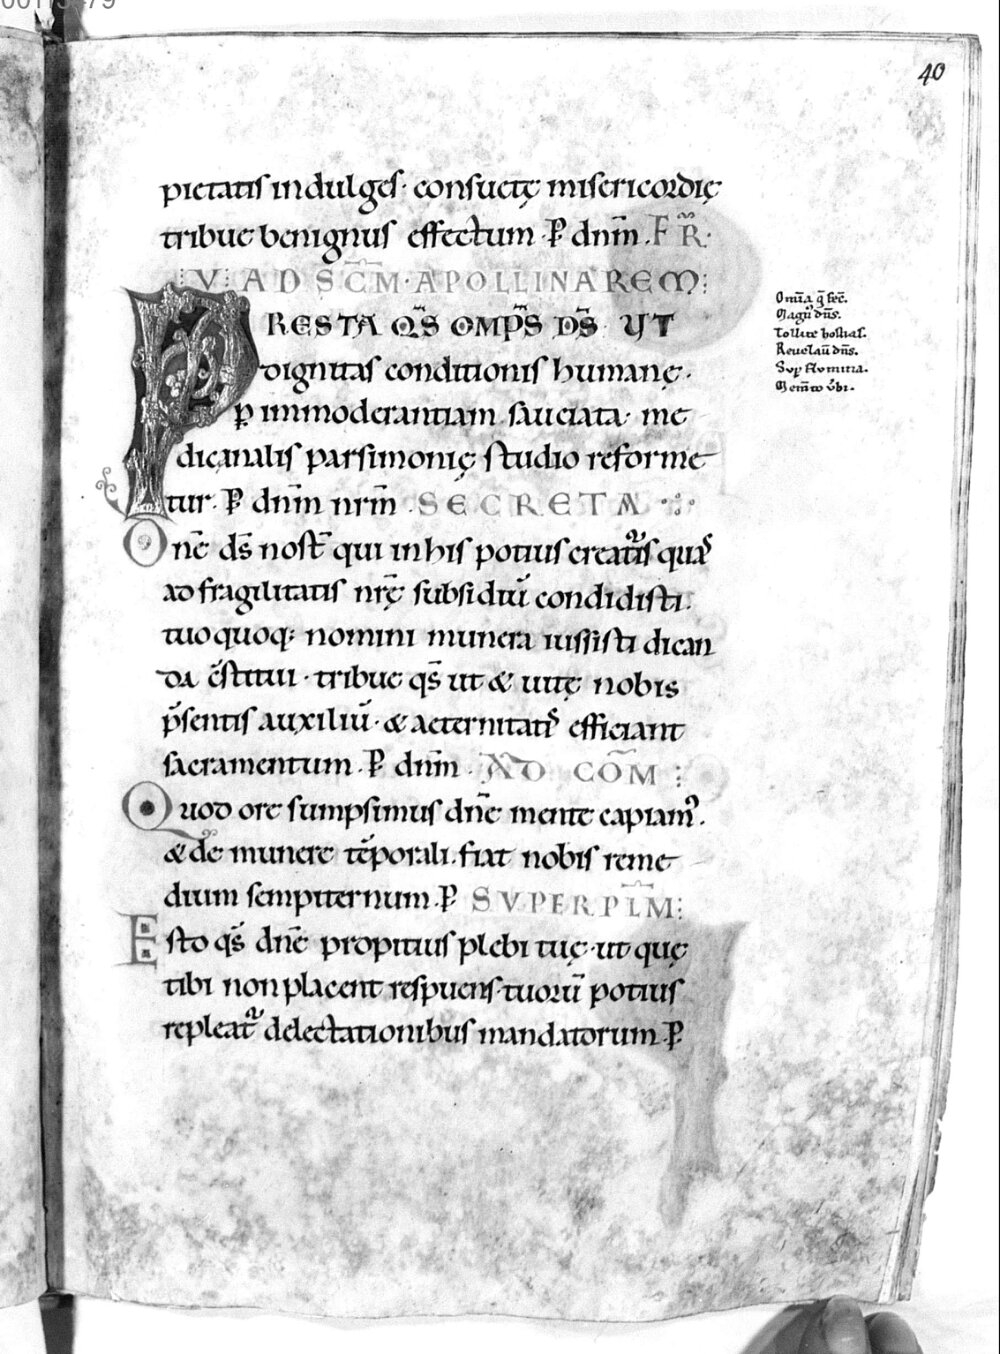 00113479
40
pietatis indulges· consuetę misericordię
tribue benignus effectum ·P dnm̄. F R̄·
:V: AD SC̄M·APOLLINAREM:
PRESTA QS̄ OMP̄S DS̄ UT
dignitas conditionis humanę·
p̱ immoderantiam sauciata· me
dicinalis parsimonię studio reforme
tur· P dnm̄ nrm̄ · SECRETA
Dnē ds̄ nosṯ qui in his potius creaturis quas
ad fragilitatis nrę̄ subsidiū condidisti·
tuo quoq; nomini munera iussisti dican
da c̄stitui · tribue qs̄ ut & uitę nobis
p̄sentis auxiliū· & aeternitatis efficiant
sacramentum ·P dnm̄ · AD COM̄ :
Quod ore sumpsimus dnē mente capiam᾽·
& de munere tēporali· fiat nobis reme
dium sempiternum ·P SVPER PL̄M:
Esto qs̄ dnē propitius plebi tuę· ut quę
tibi non placent respuens· tuorū potius
repleat᾽ delectationibus mandatorum ·P
Omīa q̄ fec̄.
Magn᾽ dn̄s.
Tollite hostias.
Reuelau̅ dn̄s.
Sup̱ flumina.
Mem̄to ūbi·